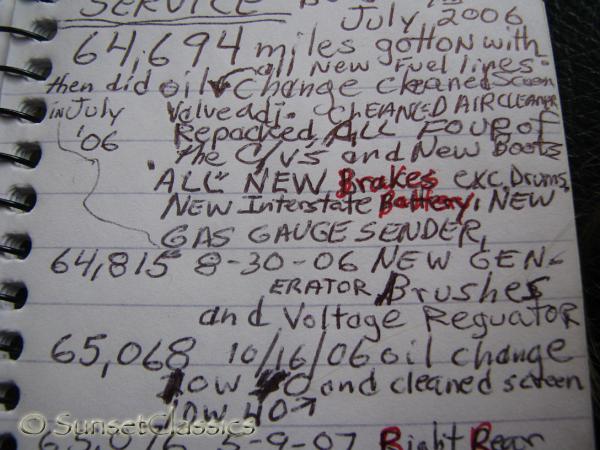 SERVICE
July 2006
64,694 miles gotton with
all New Fuel lines
then did oil Change cleaned Screen
in July Valve adj. CLEANED AIR CLEANER
'06 Repacked ALL FOUR of
the C/V'S and New Boots
ALL NEW Brakes exc. Drums,
NEW Interstate Battery, NEW
GAS GAUGE SENDER,
64,815 8-30-06 NEW GEN-
ERATOR Brushes
and Voltage Reguator
65,068 10/16/06 oil change
10W 40 and cleaned screen
10W 40
5-9-07 Right Rear
© SunsetClassics